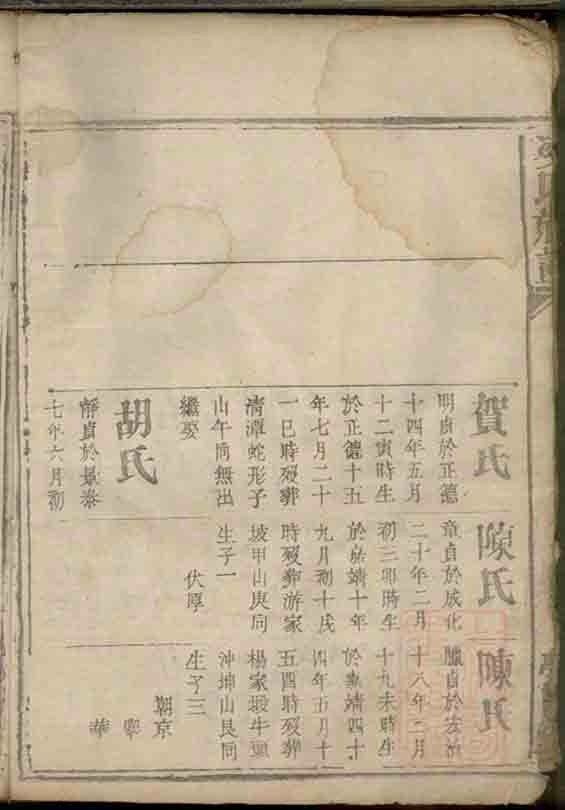 氏族譜
賀氏
明貞於正德
十四年五月
十二寅時生
於正德十五
年七月二十
一巳時歿葬
清潭蛇形子
山午向無出
繼娶
胡氏
靜貞於景泰
七年六月初
陳氏
章貞於成化
二十年二月
初三卯時生
於嘉靖十年
九月初十戌
時歿葬游家
坡甲山庚向
生子一
伏厚
陳氏
臘貞於宏治
十八年二月
十九未時生
於嘉靖四十
四年五月十
五酉時歿葬
楊家塅牛頭
沖坤山艮向
生子三
朝京
寧
華